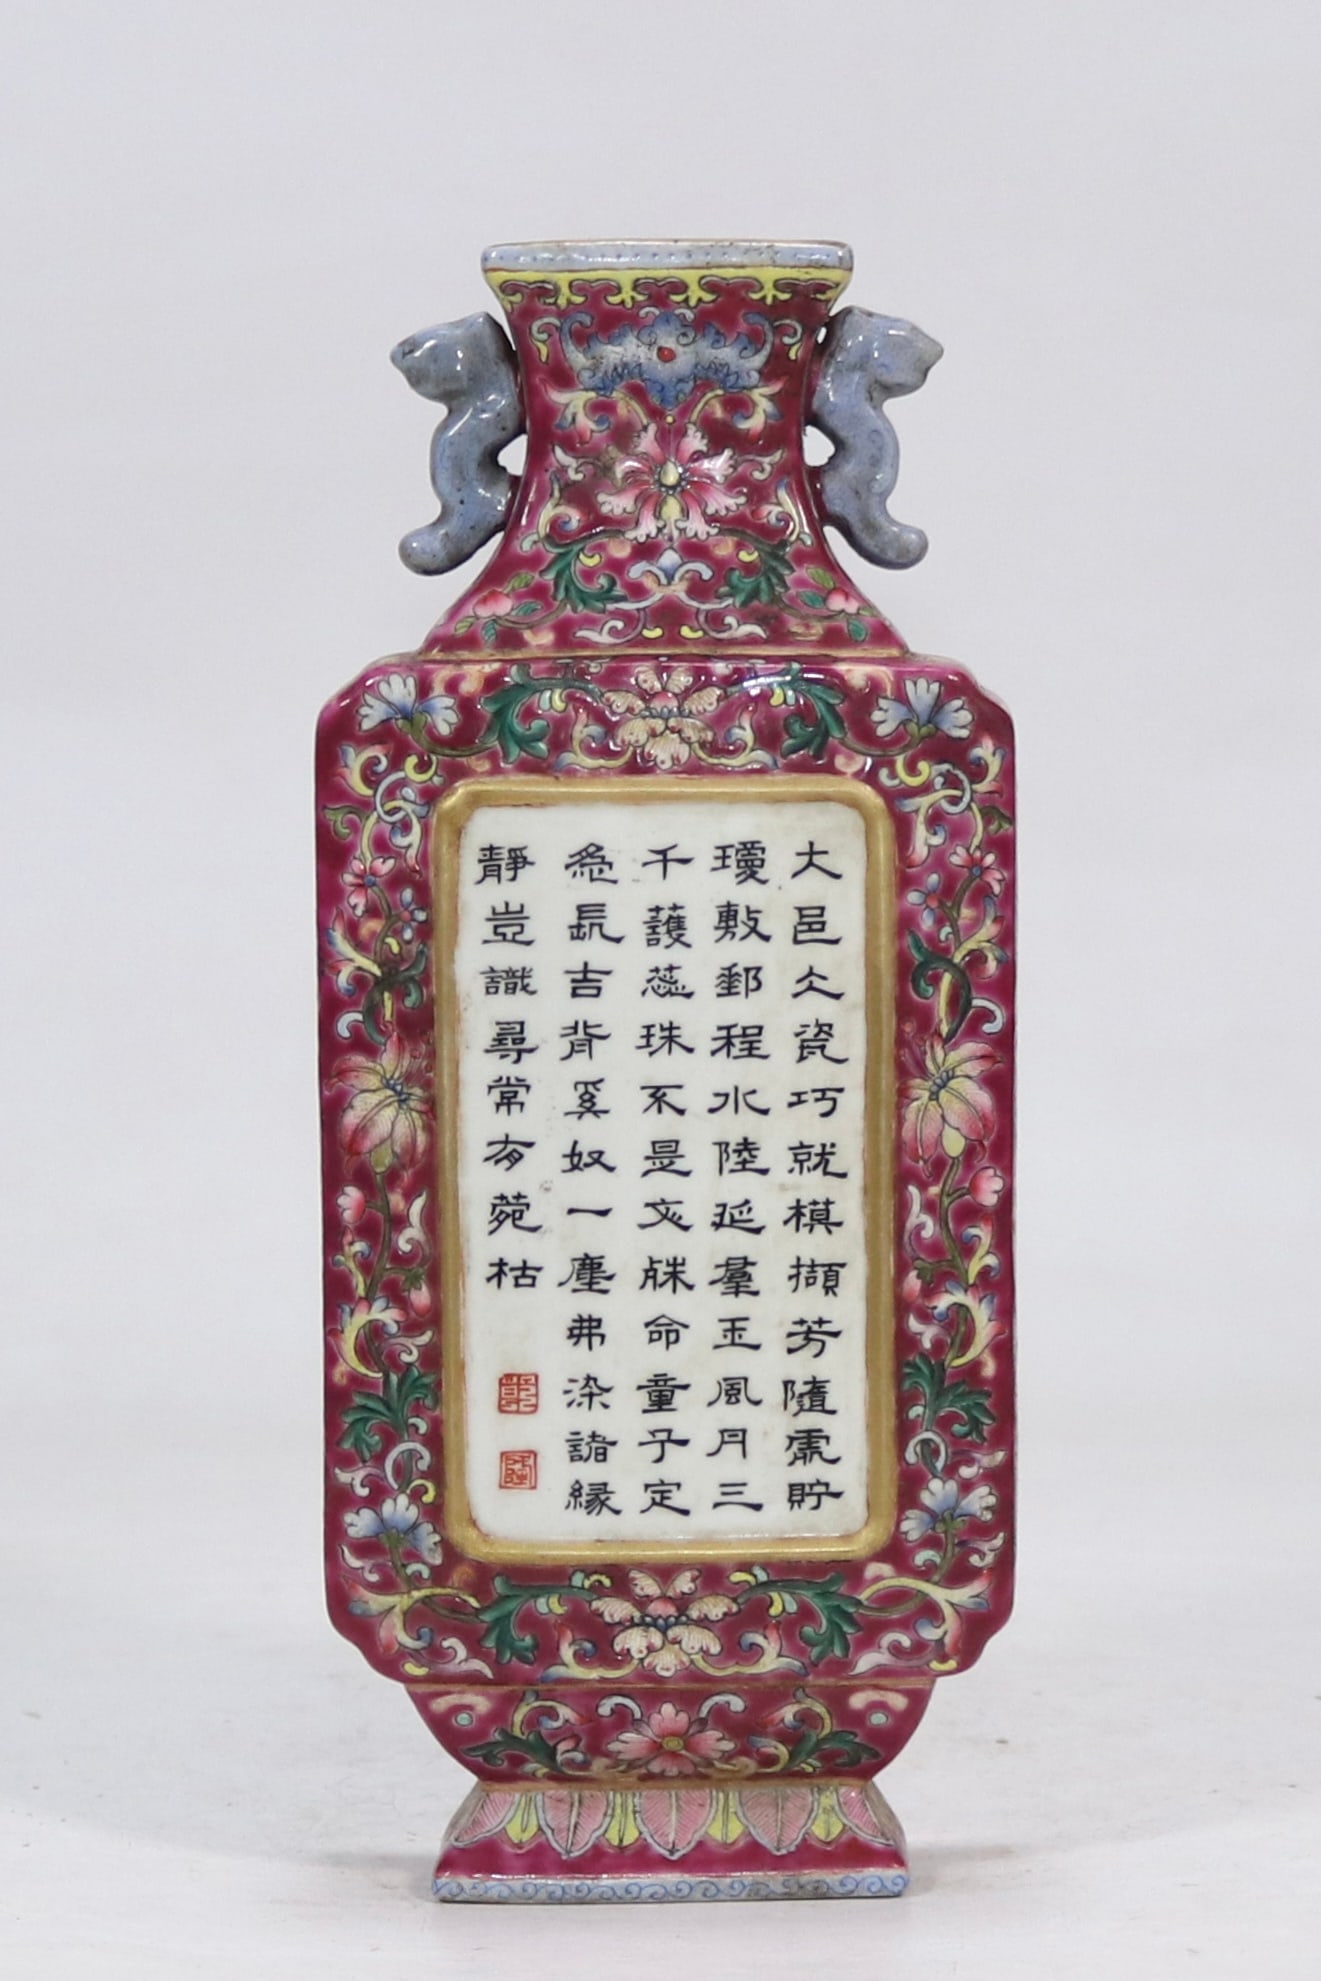 大邑仌瓷巧就模擷芳隨處貯
瓊敷郵程水陸延羣玉風月三
千護蕊珠不是文殊命童子定
為長吉背奚奴一塵弗染諸緣
靜豈識尋常有菀枯